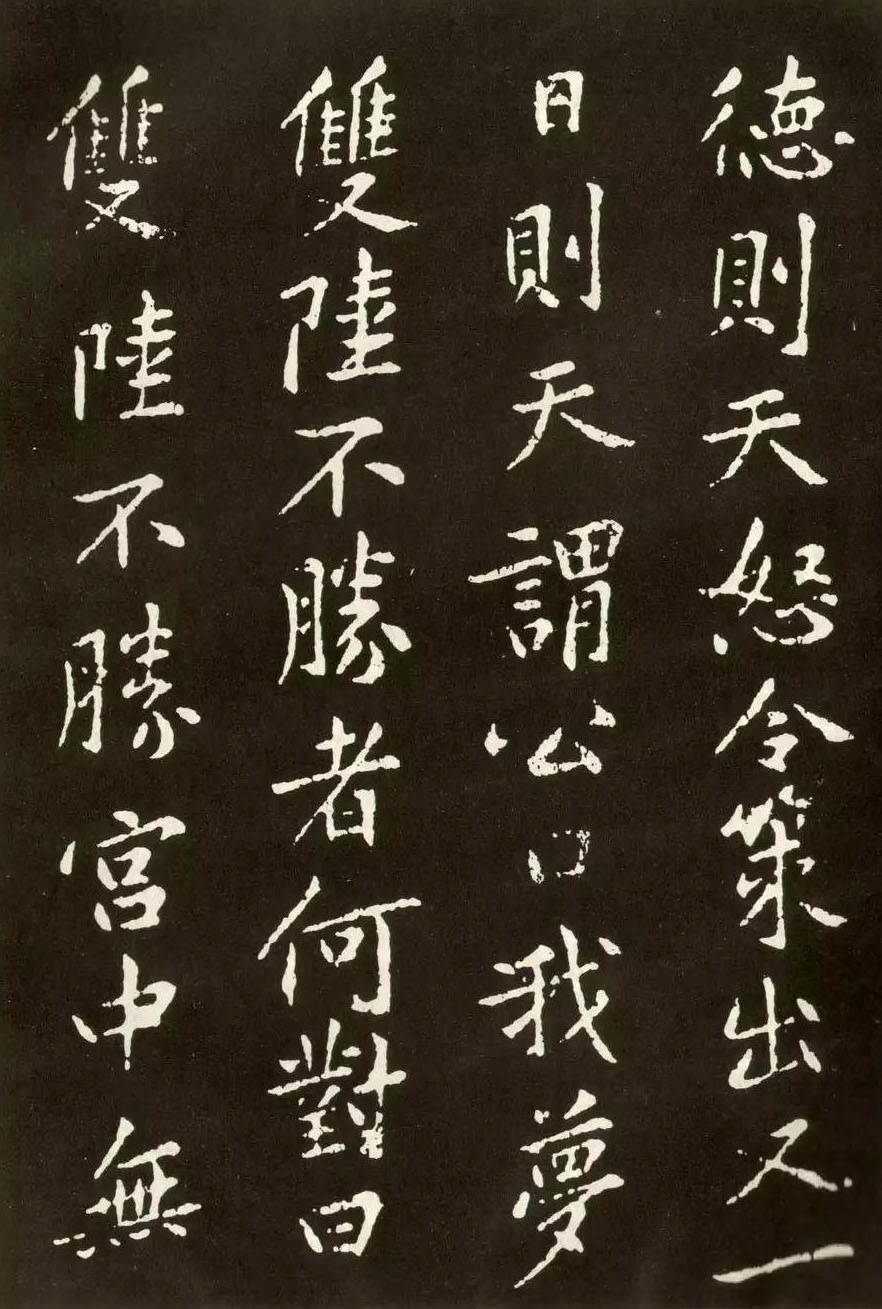 德則天怒令策出又一
日則天謂公曰我夢
雙陸不勝者何對曰
雙陸不勝宮中無